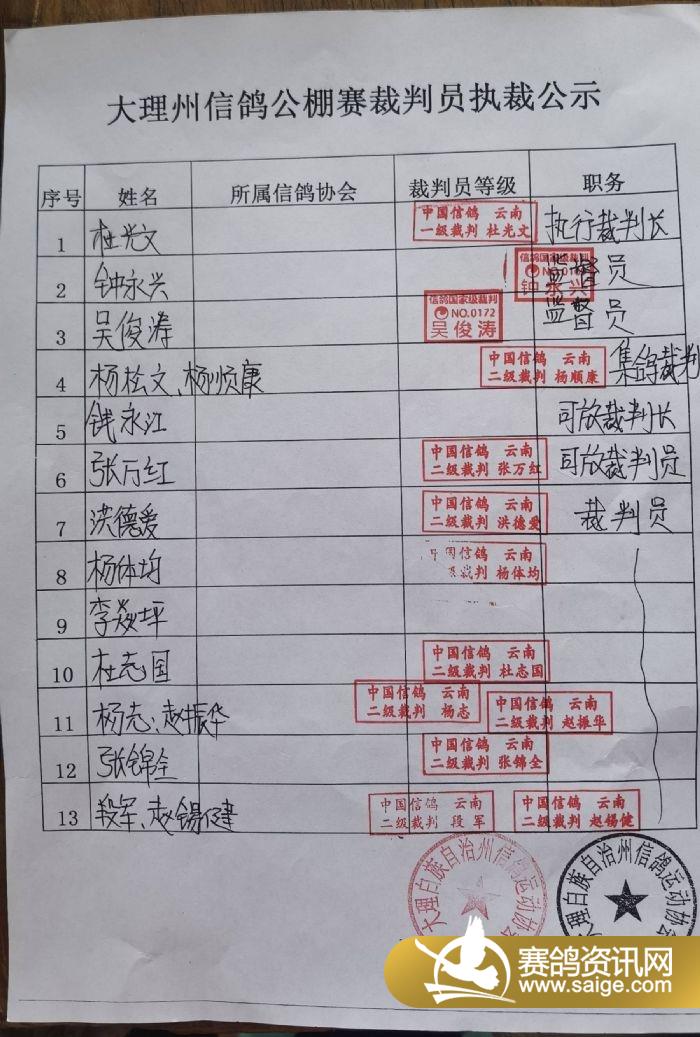 大理州信鸽公棚赛裁判员执裁公示
序号 姓名 所属信鸽协会 裁判员等级 职务
1 杜光文 中国信鸽 云南 一级裁判 杜光文 执行裁判长
2 钟永兴 信鸽国家级裁判 钟永兴 监督员
3 吴俊涛 信鸽国家级裁判 NO.0172 吴俊涛 监督员
4 杨松文、杨顺康 中国信鸽 云南 二级裁判 杨顺康 集鸽裁判
5 钱永江 司放裁判长
6 张万红 中国信鸽 云南 二级裁判 张万红 司放裁判员
7 洪德爱 中国信鸽 云南 二级裁判 洪德爱 裁判员
8 杨体均 中国信鸽 云南 二级裁判 杨体均
9 李焱坪
10 杜志国 中国信鸽 云南 二级裁判 杜志国
11 杨志、赵振华 中国信鸽 云南 二级裁判 杨志 中国信鸽 云南 二级裁判 赵振华
12 张锦全 中国信鸽 云南 二级裁判 张锦全
13 段军、赵锡健 中国信鸽 云南 二级裁判 段军 中国信鸽 云南 二级裁判 赵锡健
大理白族自治州信鸽运动协会
大理白族自治州信鸽运动协会
赛鸽资讯网
www.saige.com